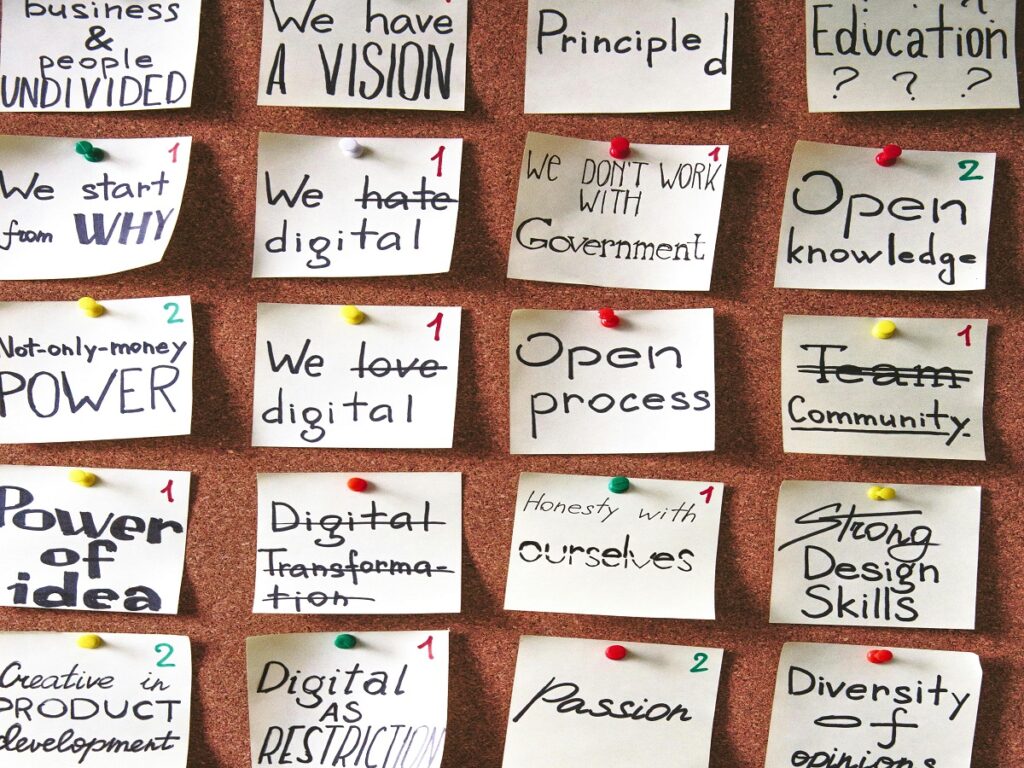 business
&
people
UNDIVIDED
We have
A VISION
Principled
Education
? ? ?
1
We start
from WHY
1
We hate
digital
1
We DON'T WORK
WITH
Government
2
Open
knowledge
2
Not-only-money
POWER
1
We love
digital
Open
process
1
Team
Community.
1
Power
of
idea
Digital
Transforma-
tion
1
Honesty with
ourselves
Strong
Design
Skills
2
Creative in
PRODUCT
development
1
Digital
AS
RESTRICTION
2
Passion
Diversity
of
opinions